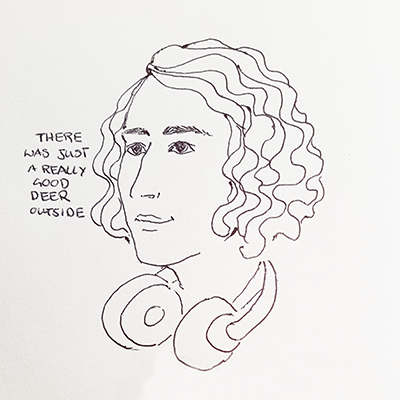 THERE
WAS JUST
A REALLY
GOOD
DEER
OUTSIDE